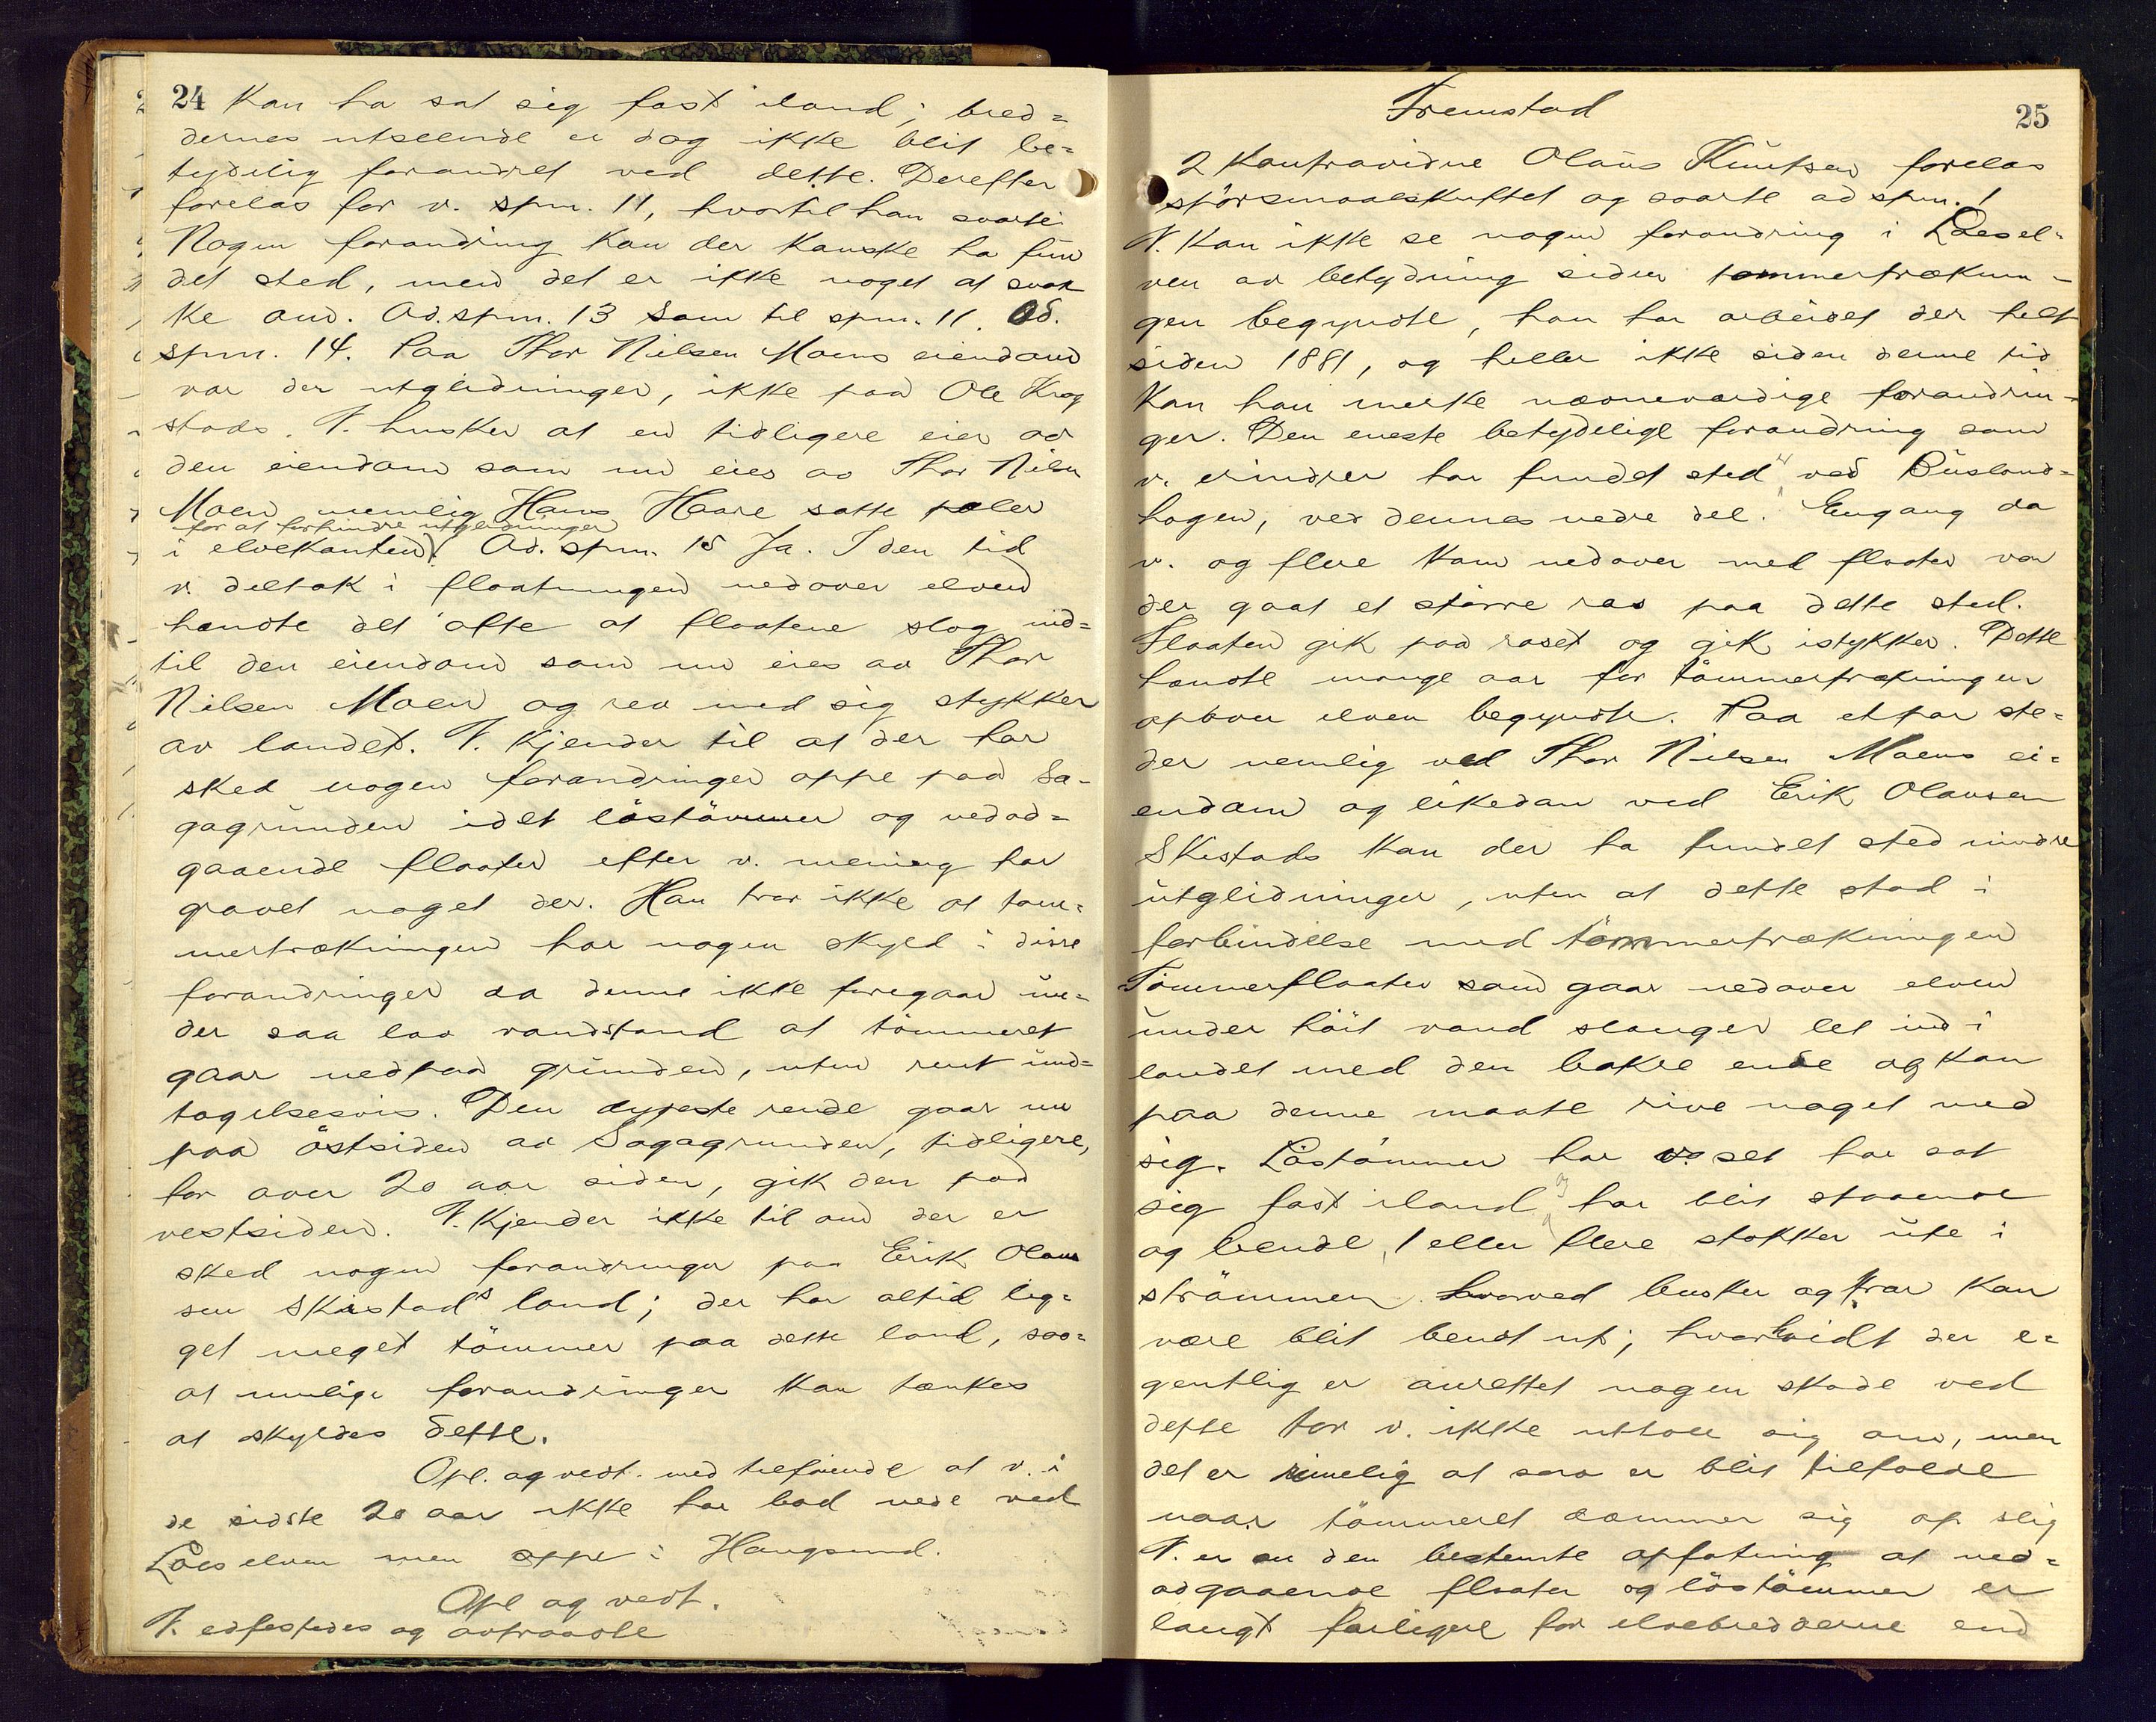 24 kan ha sat sig fast iland; bred=
dernes utseende er dog ikke blit be=
tydelig forandret ved dette. Derefter
forelæs for v. spm. 11, hvortil han svarte:
Nogen forandring kan der kanske ha fun
det sted, men det er ikke noget at snak
ke om. Ad. spm. 13 Som til spm. 11. Ad.
spm. 14. Paa Thor Nielsen Moens eiendom
var der utglidninger, ikke paa Ole Krog
stads. V. husker at en tidligere eier av
den eiendom som nu eies av Thor Nilsen
Moen nemlig Hans Haare satte pæler
for at forhindre utglidninger
i elvekanten. Ad. spm. 15 Ja. I den tid
v. deltok i flaatningen nedover elven
hændte det ofte at flaatene slog ind=
til den eiendom som nu eies av Thor
Nielsen Moen og rev med sig stykker
av landet. V. kjender til at der har
sked nogen forandringer oppe paa Sa=
gagrunden idet löstömmer og nedad=
gaaende flaater efter v. mening har
gravet noget der. Han tror ikke at töm=
mertrækningen har nogen skyld i disse
forandringer da denne ikke foregaar un=
der saa lav vandstand at tömmeret
gaar nedpaa grunden, uten rent und=
tagelsesvis. Den dypeste rende gaar nu
paa östsiden av Sagagrunden, tidligere,
for over 20 aar siden, gik den paa
vestsiden. V. kjender ikke til om der er
sked nogen forandringer paa Erik Olaus
sen Skistads land; der har altid lig=
get meget tömmer paa dette land, saa=
at mulige forandringer kan tænkes
at skyldes dette.
Opl. og vedt. med tilföiende at v. i
de sidste 20 aar ikke har bod nede ved
Loeselven men oppe i Haugsund.
Opl og vedt.
V. edfestedes og avtraadte
Fremstod
25
2 kontravidne Olaus Knutsen forelæs
spörsmaalskriftet og svarte ad spm. 1
V. kan ikke se nogen forandring i Loesel=
ven av betydning siden tømmertræknin=
gen begyndte, han har arbeidet der helt
siden 1881, og heller ikke siden denne tid
kan han merke nævneværdige forandrin=
ger. Den eneste betydelige forandring som
v. erindrer har fundet sted er ved Busland=
hagen, ved dennes nedre del. Engang da
v. og flere kom nedover med flaater var
der gaat et större ras paa dette sted.
Flaaten gik paa raset og gik istykker. Dette
hændte mange aar før tömmertrækningen
opover elven begyndte. Paa et par ste=
der nemlig ved Thor Nielsen Moens ei=
endom og likedan ved Erik Olausen
Skistads kan der ha fundet sted mindre
utglidninger, uten at dette stod i
forbindelse med tömmertrækningen
Tömmerflaater som gaar nedover elven
under höit vand slænger let ind i
landet med den bakre ende og kan
paa denne maate rive noget med
sig. Löstömmer har v. set har sat
sig fast iland og har blit staaende
og bende 1 eller flere stokker ute i
strömmen hvorved busker og trær kan
være blit bendt ut; hvorvidt der e=
gentlig er anrettet nogen skade ved
dette tör v. ikke uttale sig om, men
det er rimelig at saa er blit tilfælde
naar tömmeret dæmmer sig op slig
V. er av den bestemte opfatning at ned=
adgaaende flaater og löstömmer er
langt farligere for elvebredderne end